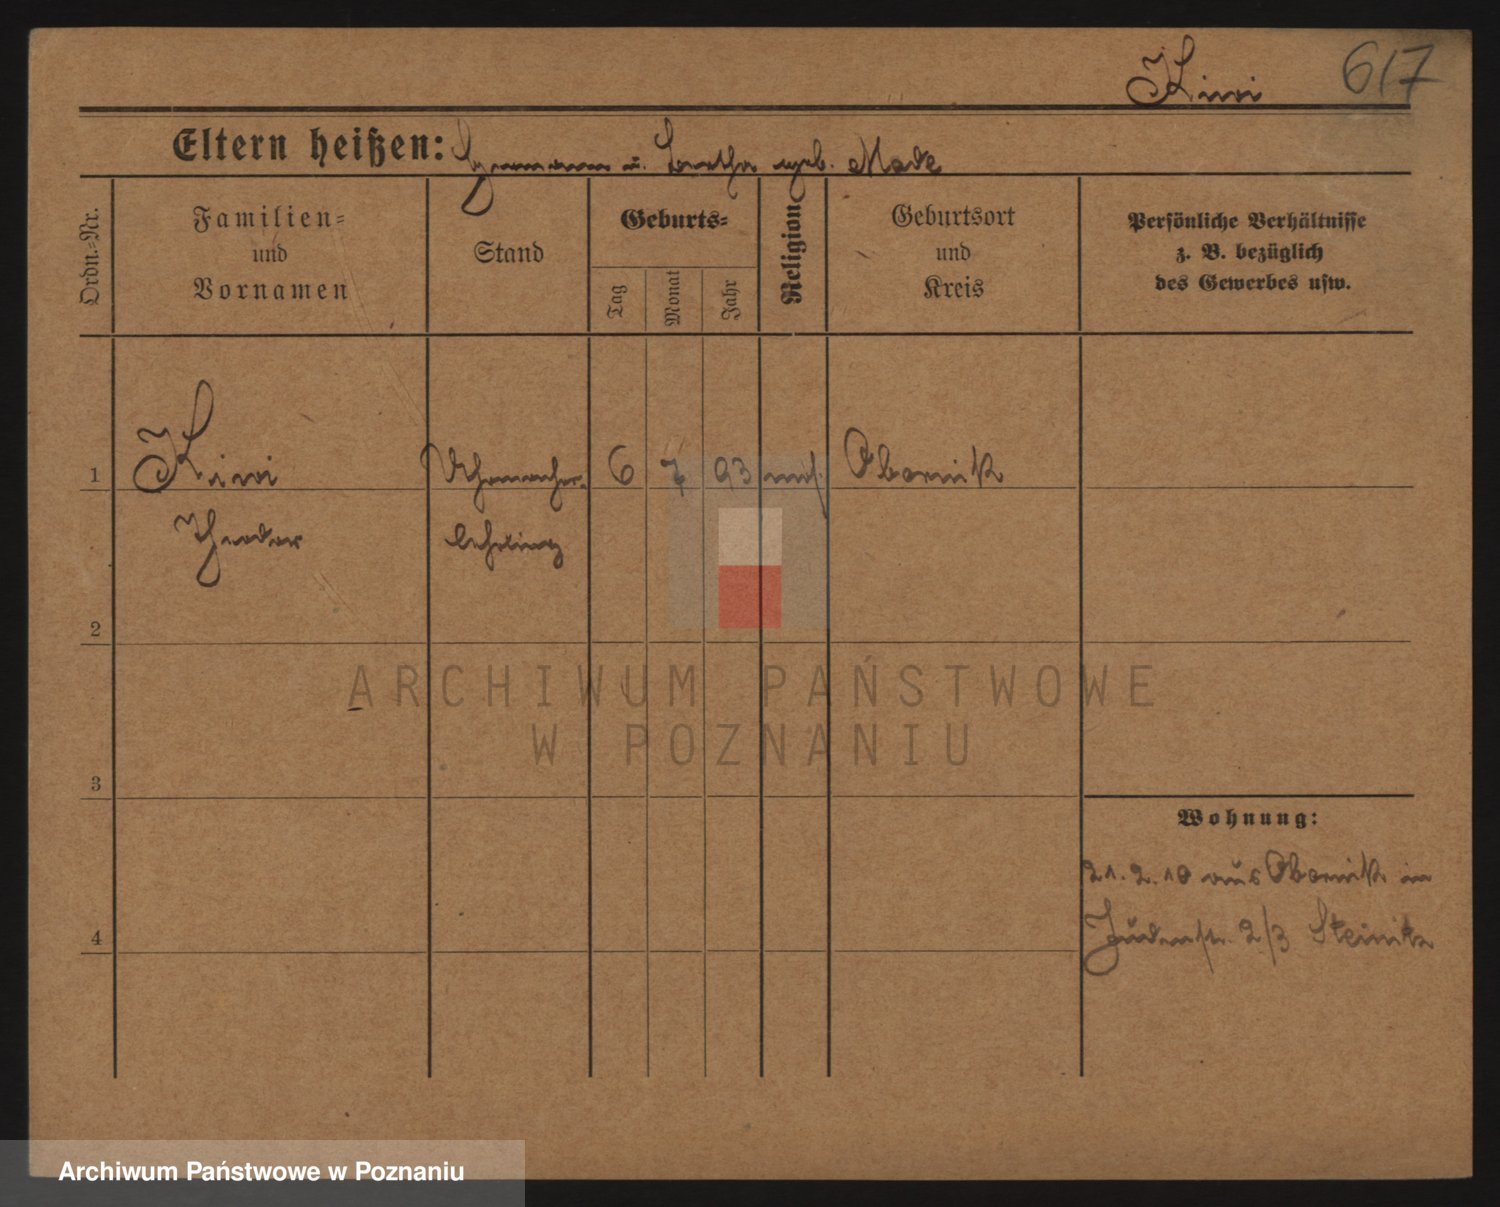 Kiwi 617
Eltern heißen: Hermann u. Bertha geb. Made
Ordn.=Nr.
Familien=
und
Vornamen
Stand
Geburts=
Tag
Monat
Jahr
Religion
Geburtsort
und
Kreis
Persönliche Verhältnisse
z. B. bezüglich
des Gewerbes usw.
1 Kiwi Uhrmacher- 6 7 93 mos. Obornik
Theodor lehrling
2
ARCHIWUM PAŃSTWOWE
W POZNANIU
3
Wohnung:
21.2.10 aus Obornik in
Judenstr. 2/3 Steinitz
4
Archiwum Państwowe w Poznaniu